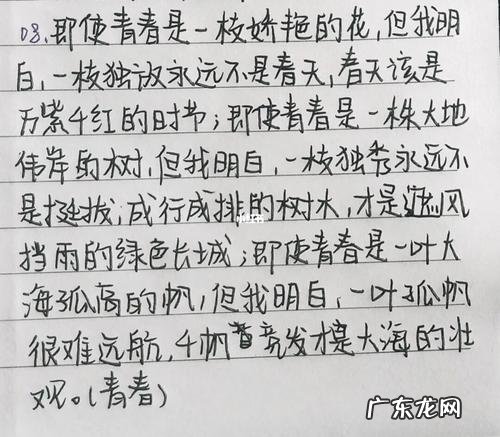 08.即使青春是一枝娇艳的花,但我明
白,一枝独放永远不是春天,春天该是
万紫千红的时节;即使青春是一株大地
伟岸的树,但我明白,一枝独秀永远不
是挺拔;成行成排的树木,才是遮风
挡雨的绿色长城;即使青春是一叶大
海孤高的帆,但我明白,一叶孤帆
很难远航,千帆竞发才是大海的壮
观。(青春)
广东龙网